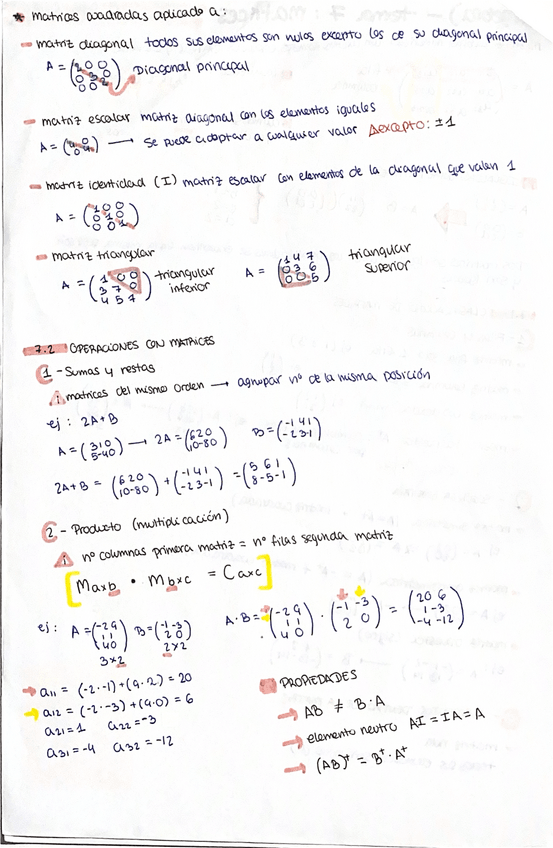 * Matrices cuadradas aplicado a:
- matriz diagonal todos sus elementos son nulos excepto los de su diagonal principal
A = (2 0 0
0 3 0
0 0 2) Diagonal principal
- matriz escalar matriz diagonal con los elementos iguales
A = (4 0
0 4) → Se puede adoptar a cualquier valor ⚠excepto: ±1
- matriz identidad (I) matriz escalar con elementos de la diagonal que valen 1
A = (1 0 0
0 1 0
0 0 1)
- matriz triangular
A = (1 0 0
3 7 0
4 5 7) triangular inferior
A = (1 4 7
0 3 6
0 0 5) triangular superior
7.2 OPERACIONES CON MATRICES
1 - Sumas y restas
¡ matrices del mismo orden → agrupar nº de la misma posición
ej: 2A+B
A = (3 1 0
5 -4 0) → 2A = (6 2 0
10 -8 0) B = (-1 4 1
-2 3 -1)
2A+B = (6 2 0
10 -8 0) + (-1 4 1
-2 3 -1) = (5 6 1
8 -5 -1)
2 - Producto (multiplicación)
¡ nº columnas primera matriz = nº filas segunda matriz
[Maxb · Mbxc = Caxc]
ej: A = (-2 9
1 1
4 0) B = (-1 -3
2 0)
3x2 2x2
A·B = (-2 9
1 1
4 0) · (-1 -3
2 0) = (20 6
1 -3
-4 -12)
→ a11 = (-2·-1)+(9·2) = 20
→ a12 = (-2·-3)+(9·0) = 6
a21 = 1 a22 = -3
a31 = -4 a32 = -12
PROPIEDADES
→ AB ≠ B·A
→ elemento neutro AI = IA = A
→ (AB)ᵗ = Bᵗ·Aᵗ